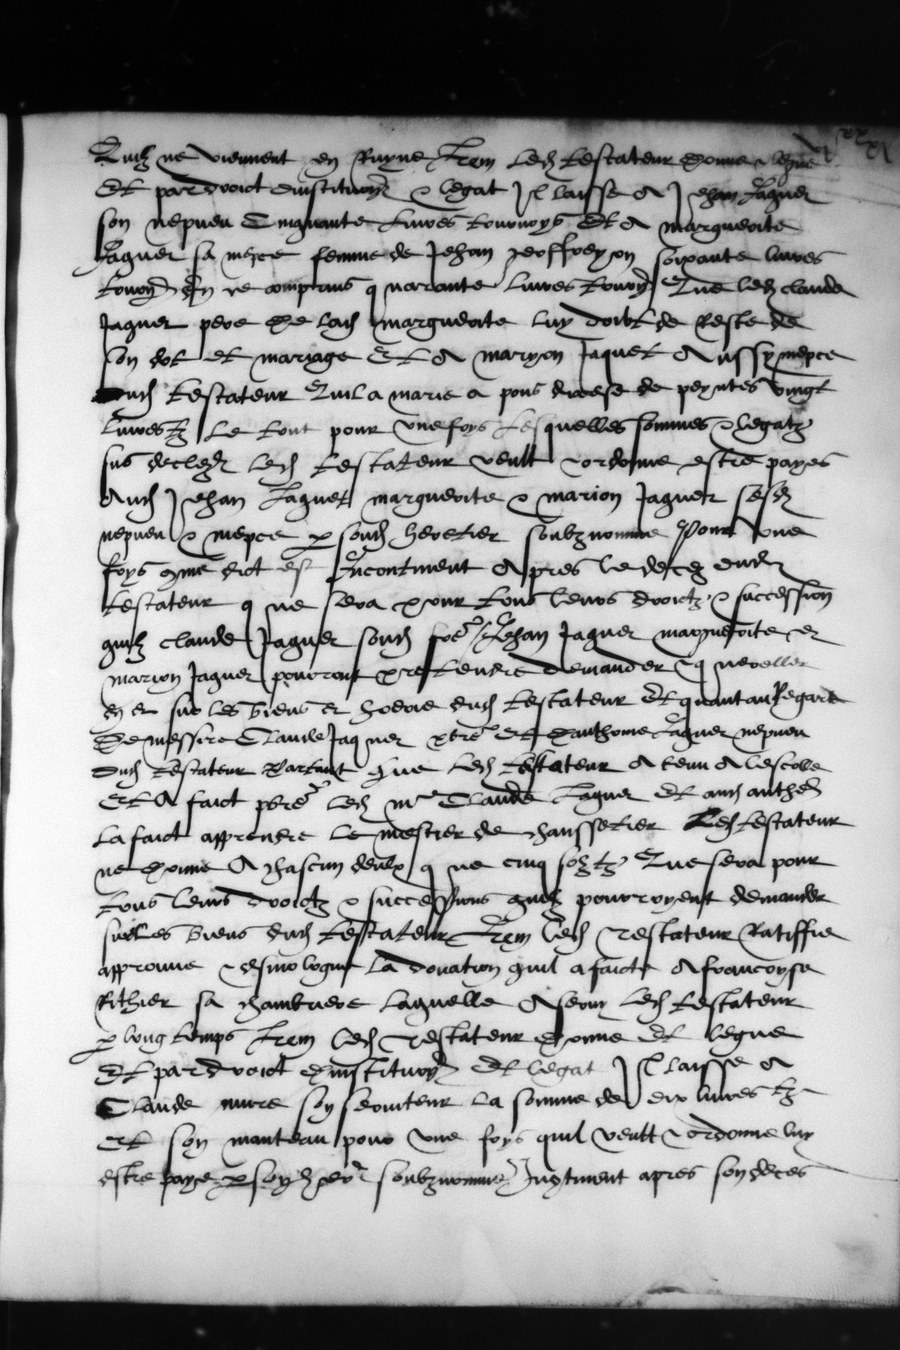 Quilz ne viennent en Ruyne Item led testateur donne & legue
Et par droict dinstitution & legat Il laisse A Jehan Jaquer
son nepveu Cinquante livres tournoys Et A marguerite
Jaquer sa niepce femme de Jehan Jeoffroy on soixante livres
tourn En ce comprins quarante livres tourn Que led claude
Jaquer pere de lad marguerite luy doibt de Reste de
son dot et mariage Et A maryon Jaquer Aussy niepce
dud testateur Quil a marie a pons diocese de vingt
livres tz Le tout pour une foys Lesquelles sommes & legatz
sus declez led testateur veult & ordonne estre payes
Aud Jehan Jaquer marguerite & marion Jaquer sesd
nepveu & niepce p soud heretier soubznomme Pour une
foys come dict est Incontinent Apres le deces dud
testateur que sera pour tous leurs droictz & succession
quilz claude Jaquer soud Jehan Jaquer marguerite et
marion Jaquer pourront pretendre demander & quereller
en et sur les biens et hoerie dud testateur Et quant au Regard
De messire Claude Jaquer pbre Et danthoine Jaquer nepveu
dud testateur Partant que led testateur A tenu A lescolle
Et A faict pbre led mre Claude Jaquer Et aud anthoe
La faict apprendre le mestier de chaussetier Led testateur
ne donne A chascun deulx que cinq solz tz Que sera pour
tous leurs droictz & successions quilz pourroyent demander
sur les biens dud testateur Item led testateur Ratiffie
approuve & esmologue La donation quil a faicte A francoyse
Rithier sa chambriere laquelle A servy led testateur
p long temps Item led testateur donne Et legue
Et par droict dinstitution Et legat Il laisse A
Claude mire son serviteur la somme de dix livres tz
Et son manteau pour une foys quil veult & ordonne luy
estre paye p sond soubznomme apres son deces